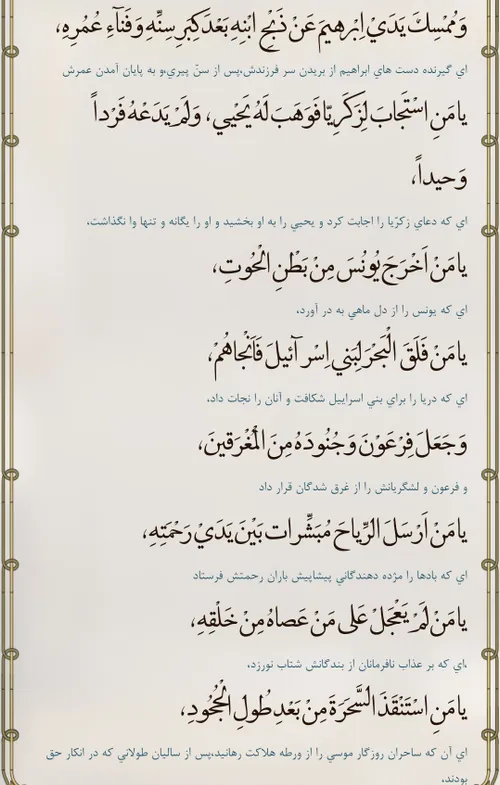 وَمُمْسِكَ يَدَيْ اِبْرهيمَ عَنْ ذَبْحِ ابْنِهِ بَعْدَ كِبَرِ سِنِّهِ وَفَنَآءِ عُمُرِهِ،
اي گيرنده دست هاي ابراهيم از بريدن سر فرزندش،پس از سنّ پيري،و به پايان آمدن عمرش
يامَنِ اسْتَجابَ لِزَكَرِيّا فَوَهَبَ لَهُ يَحْيي، وَلَمْ يَدَعْهُ فَرْداً
وَحيداً،
اي كه دعاي زكرّيا را اجابت كرد و يحيي را به او بخشيد و او را يگانه و تنها وا نگذاشت،
يامَنْ اَخْرَجَ يُونُسَ مِنْ بَطْنِ الْحُوتِ،
اي كه يونس را از دل ماهي به در آورد،
يامَنْ فَلَقَ الْبَحْرَ لِبَني اِسْرآئيلَ فَاَنْجاهُمْ،
اي كه دريا را براي بني اسراييل شكافت و آنان را نجات داد،
وَجَعَلَ فِرْعَوْنَ وَجُنُودَهُ مِنَ الْمُغْرَقينَ،
و فرعون و لشگريانش را از غرق شدگان قرار داد
يامَنْ اَرْسَلَ الرِّياحَ مُبَشِّرات بَيْنَ يَدَيْ رَحْمَتِهِ،
اي كه بادها را مژده دهندگاني پيشاپيش باران رحمتش فرستاد
يامَنْ لَمْ يَعْجَلْ عَلى مَنْ عَصاهُ مِنْ خَلْقِهِ،
،اي كه بر عذاب نافرمانان از بندگانش شتاب نورزد،
يامَنِ اسْتَنْقَذَ السَّحَرَةَ مِنْ بَعْدِ طُولِ الْجُحُودِ،
اي آن كه ساحران روزگار موسي را از ورطه هلاكت رهانيد،پس از ساليان طولاني كه در انكار حق
بودند،